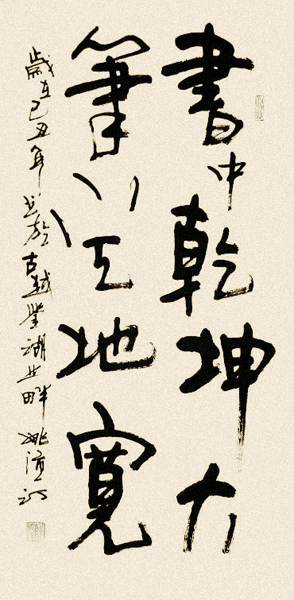 書中乾坤大
筆下天地寬
歲在己丑年書於古越鑒湖之畔 姚